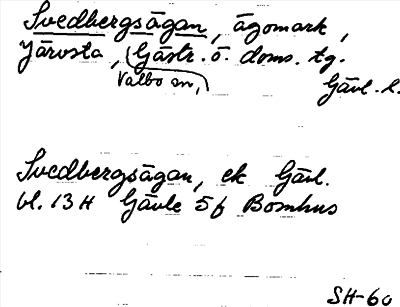 Svedbergsägan, ägomark,
Järvsta, Gästr. ö. doms. tg.
Valbo sn, Gävl. l.
Svedbergsägan, ek Gävl.
bl. 13 H Gävle 5 f Bomhus
SH-60